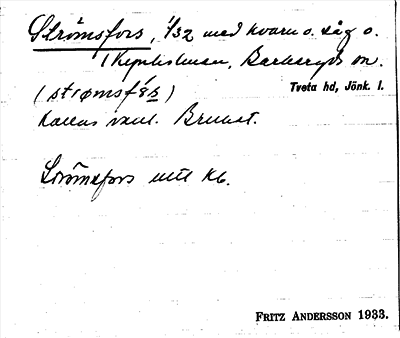 Strömsfors, 1/32 med kvarn o. såg o.
Barkeryds sn.
Tveta hd, Jönk. l.
(strømsfòs̱)
kallas vanl. Brunst.
Strömsfors utt. kb.
FRITZ ANDERSSON 1933.